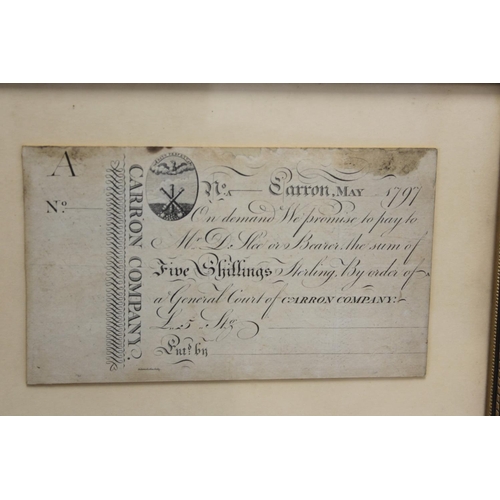 A
No.
CARRON COMPANY.
No. Carron, MAY 1797
On demand We promise to pay to
Mr. D. or Bearer, the sum of
Five Shillings Sterling. By order of
a General Court of CARRON COMPANY.
5 Stg.
Entd. by